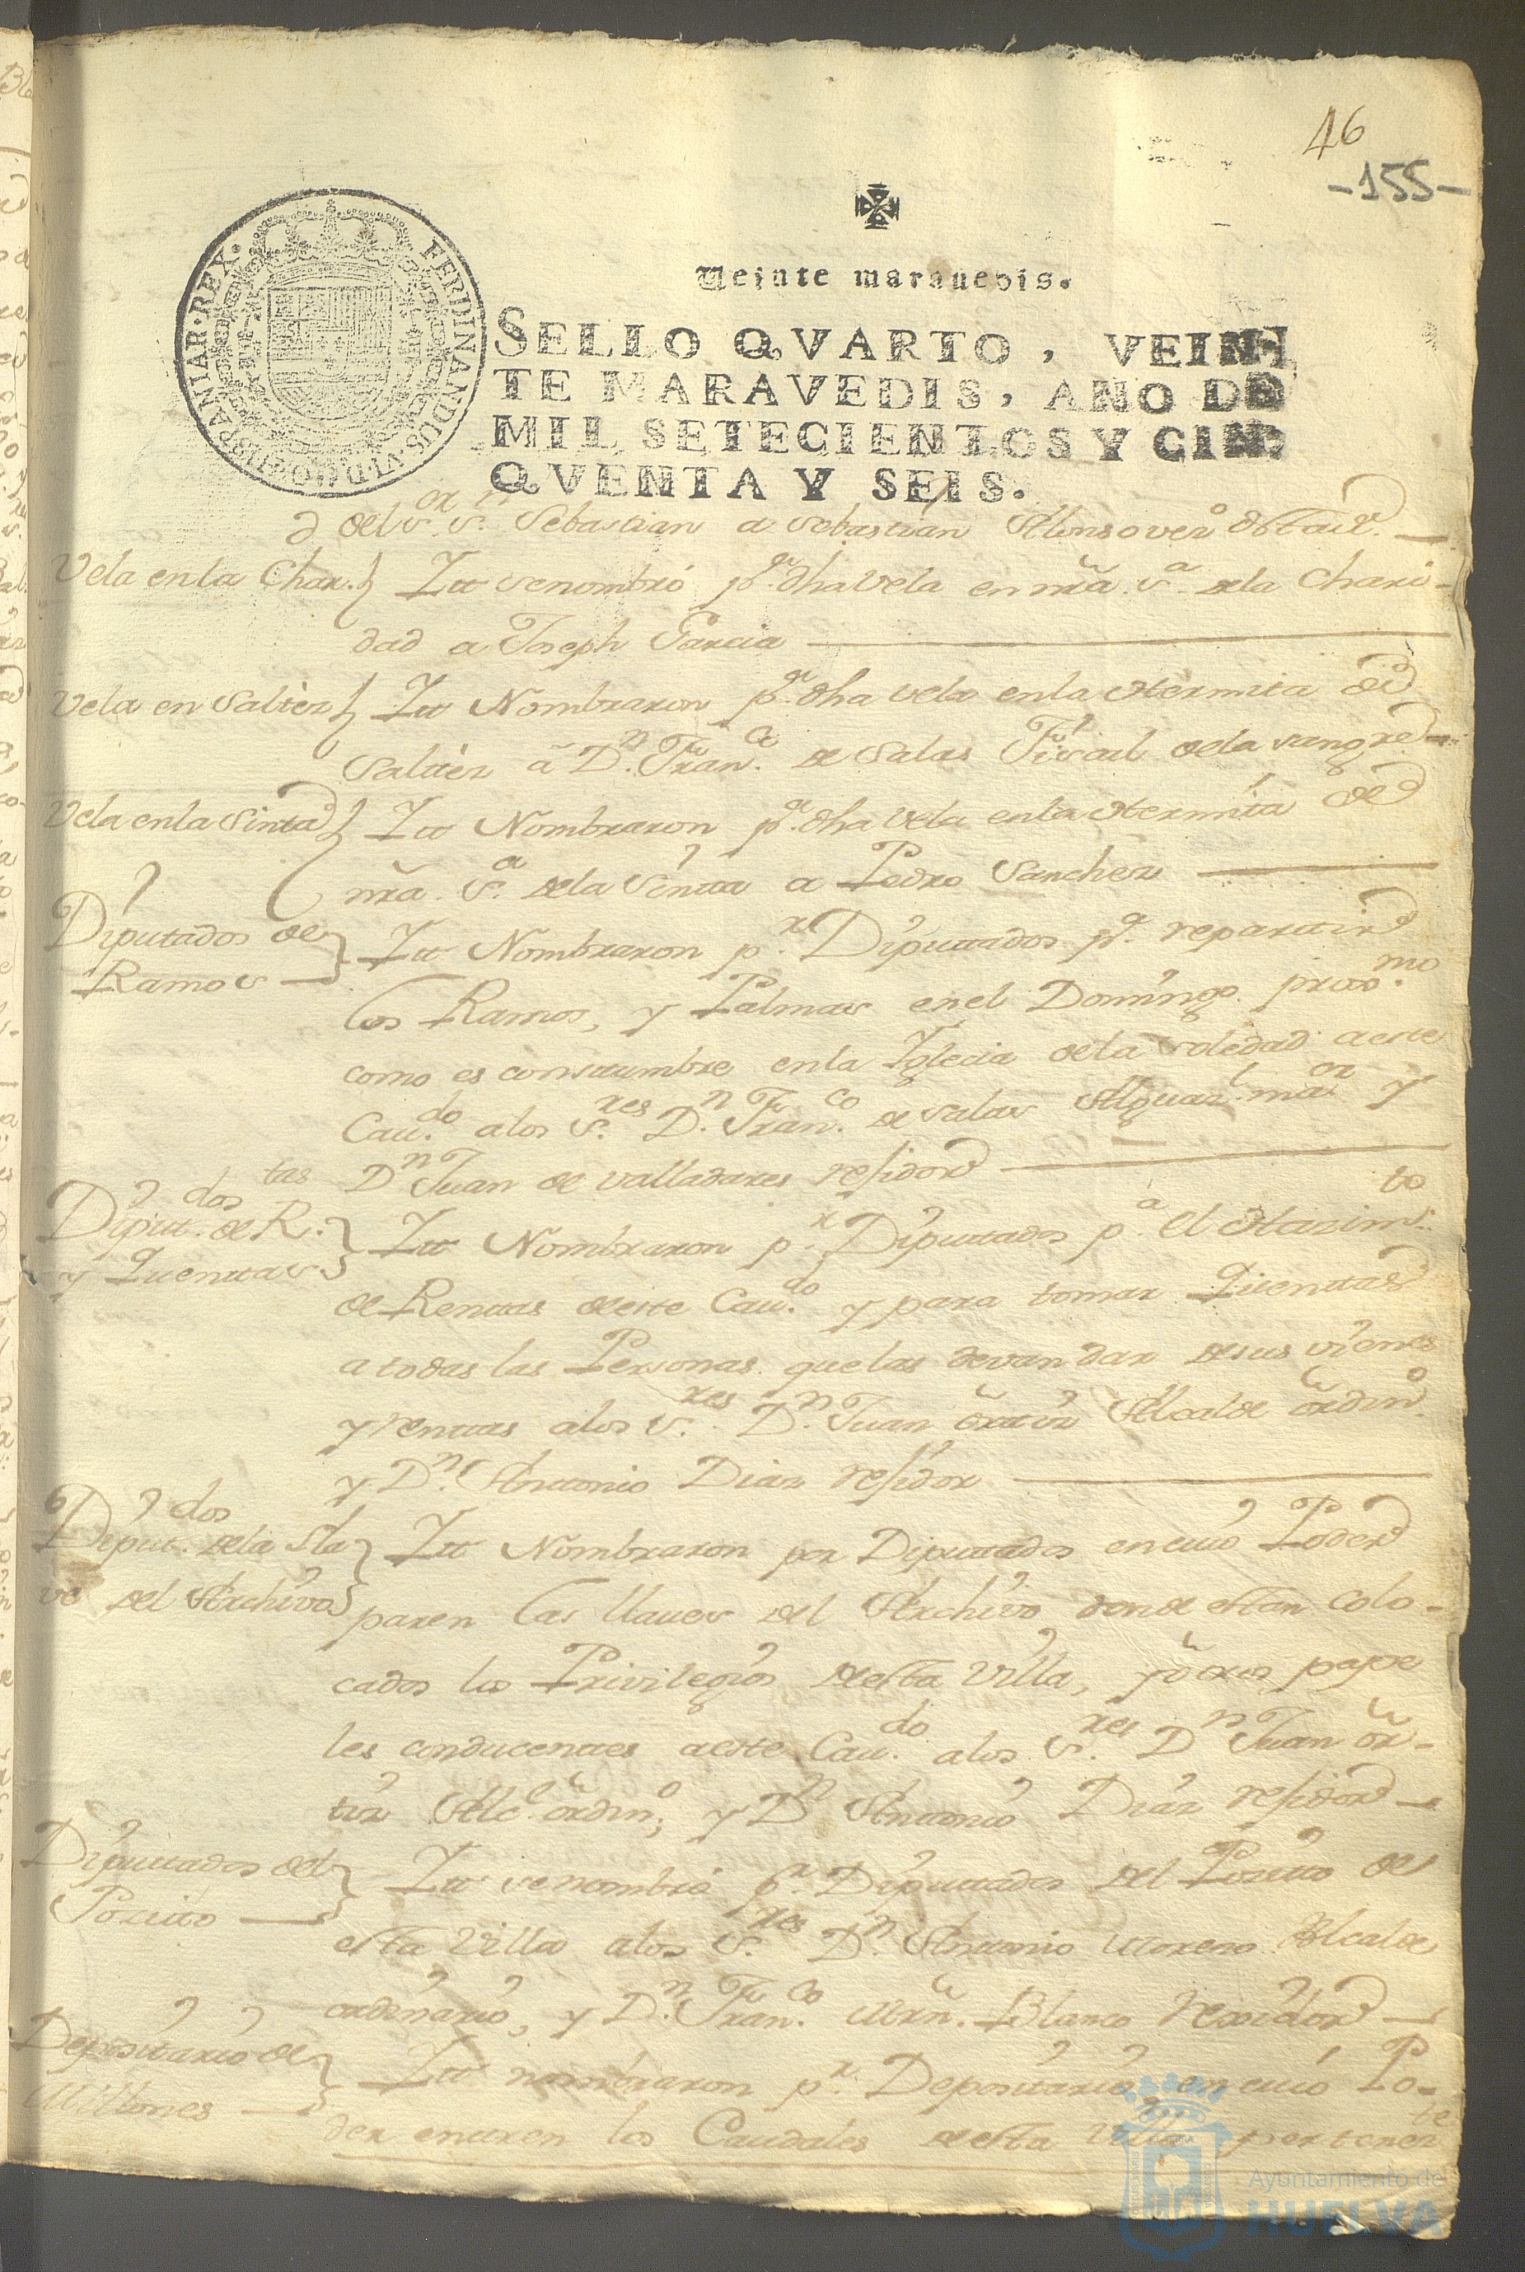 46
-155-
Veinte maravedis.
SELLO QVARTO, VEIN
TE MARAVEDIS, AÑO DE
MIL SETECIENTOS Y CIN
QVENTA Y SEIS.
FERDINANDUS·VI·D·G·HISPANIAR·REX·
del Sor Sn Sebastian a Sebastian Alonso vezº
Vela en la Char. Itt se nombró pa dha Vela en nra Sa de la Chari-
dad a Joseph Garcia
Vela en Saltes Itt Nombraron pa dha vela en la Hermita de
Saltes a Dn Franco de Salas Fiscal de la sangre
Vela en la Sinta Itt Nombraron pa dha Vela en la Hermita de
nra Sa de la Sinta a Pedro Sanchez
Diputados de Ramos Itt Nombraron pr Diputados pa repartir
los Ramos, y Palmas en el Domingo proxmo
como es constumbre en la Iglecia de la Soledad a este
Cavdo a los Sres Dn Franco de Salas Alguazl maor y
Dn Juan de Valladares rejidor
Diputdos de Rtas y Quentas Itt Nombraron pr Diputados pa el Hazimto
de Rentas de este Cavdo y para tomar Quentas
a todas las Personas que las devan dar de sus vienes
y rentas a los Sres Dn Juan Ortiz Alcalde ordino
y Dn Antonio Diaz rejidor
Diputdos de la Lla
ve del Archivo Itt Nombraron por Diputados en cuio Poder
paren las llaves del Archivo donde estan colo-
cados los Privilegios de esta Villa, y otros pape
les conducentes a este Cavdo a los Sres Dn Juan Or-
tiz Alce ordino, y Dn Antonio Diaz rejidor
Diputados del Pocito Itt se nombró pr Diputados del Pozito de
esta Villa a los Sres Dn Antonio Moreno Alcalde
ordinario, y Dn Franco Mrn Blanco Rexidor
Depositario de Millones Itt nombraron pr Depositario en cuio Po-
der entren los Caudales de esta Villa pertenezte
Ayuntamiento de
HUELVA